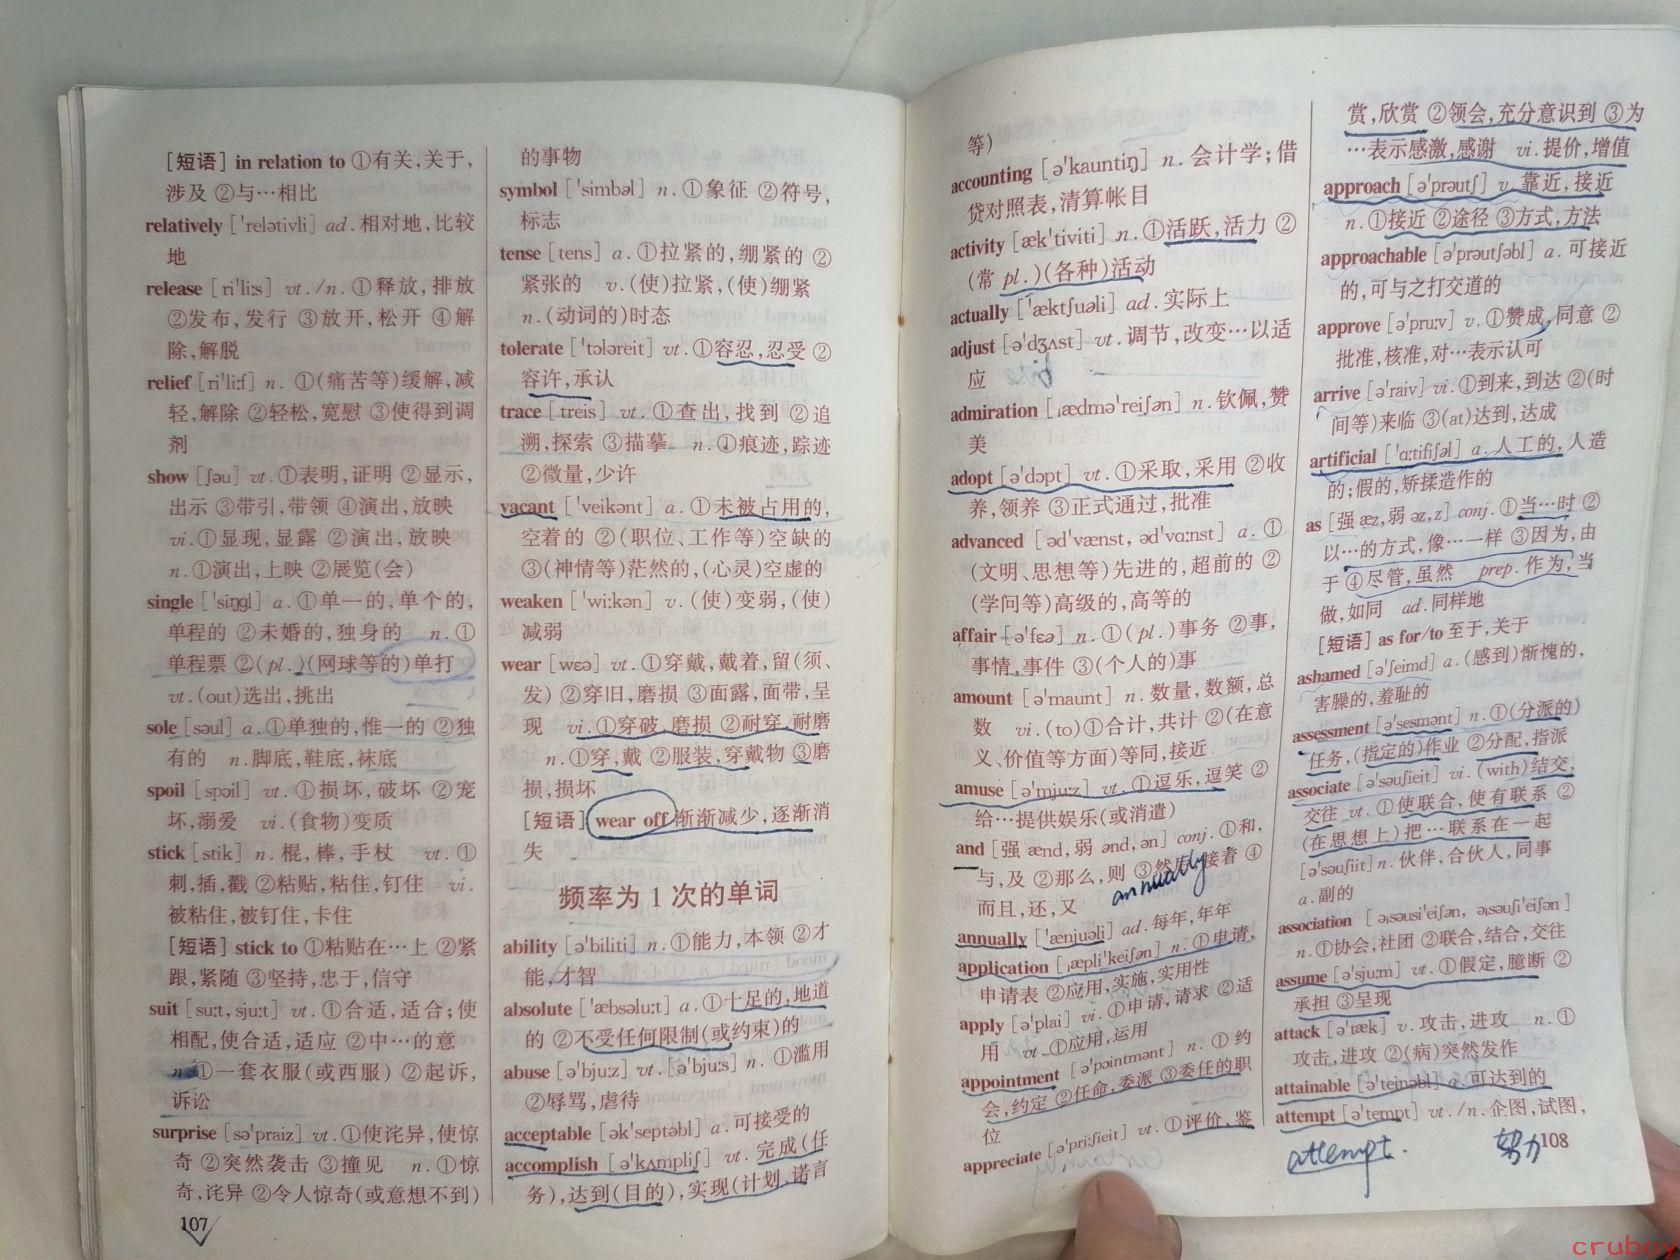 [短语] in relation to ①有关,关于,
涉及 ②与…相比
relatively ['relətivli] ad.相对地,比较
地
release [ri'li:s] vt./n. ①释放,排放
②发布,发行 ③放开,松开 ④解
除,解脱
relief [ri'li:f] n. ①(痛苦等)缓解,减
轻,解除 ②轻松,宽慰 ③使得到调
剂
show [ʃəu] vt.①表明,证明 ②显示,
出示 ③带引,带领 ④演出,放映
vi.①显现,显露 ②演出,放映
n.①演出,上映 ②展览(会)
single ['siŋgl] a.①单一的,单个的,
单程的 ②未婚的,独身的 n.①
单程票 ②(pl.)(网球等的)单打
vt.(out)选出,挑出
sole [səul] a.①单独的,惟一的 ②独
有的 n.脚底,鞋底,袜底
spoil [spɔil] vt.①损坏,破坏 ②宠
坏,溺爱 vi.(食物)变质
stick [stik] n.棍,棒,手杖 vt.①
刺,插,戳 ②粘贴,粘住,钉住 vi.
被粘住,被钉住,卡住
[短语] stick to ①粘贴在…上 ②紧
跟,紧随 ③坚持,忠于,信守
suit [su:t, sju:t] vt.①合适,适合;使
相配,使合适,适应 ②中…的意
n.①一套衣服(或西服) ②起诉,
诉讼
surprise [sə'praiz] vt.①使诧异,使惊
奇 ②突然袭击 ③撞见 n.①惊
奇,诧异 ②令人惊奇(或意想不到)
107
的事物
symbol ['simbəl] n.①象征 ②符号,
标志
tense [tens] a.①拉紧的,绷紧的 ②
紧张的 v.(使)拉紧,(使)绷紧
n.(动词的)时态
tolerate ['tɔləreit] vt.①容忍,忍受 ②
容许,承认
trace [treis] vt.①查出,找到 ②追
溯,探索 ③描摹 n.①痕迹,踪迹
②微量,少许
vacant ['veikənt] a.①未被占用的,
空着的 ②(职位、工作等)空缺的
③(神情等)茫然的,(心灵)空虚的
weaken ['wi:kən] v.(使)变弱,(使)
减弱
wear [wɛə] vt.①穿戴,戴着,留(须、
发) ②穿旧,磨损 ③面露,面带,呈
现 vi.①穿破,磨损 ②耐穿,耐磨
n.①穿,戴 ②服装,穿戴物 ③磨
损,损坏
[短语] wear off 渐渐减少,逐渐消
失
频率为1次的单词
ability [ə'biliti] n.①能力,本领 ②才
能,才智
absolute ['æbsəlu:t] a.①十足的,地道
的 ②不受任何限制(或约束)的
abuse [ə'bju:z] vt.[ə'bju:s] n.①滥用
②辱骂,虐待
acceptable [ək'septəbl] a.可接受的
accomplish [ə'kʌmpliʃ] vt.完成(任
务),达到(目的),实现(计划,诺言
等)
accounting [ə'kauntiŋ] n.会计学;借
贷对照表,清算帐目
activity [æk'tiviti] n.①活跃,活力 ②
(常 pl.)(各种)活动
actually ['æktʃuəli] ad.实际上
adjust [ə'dʒʌst] vt.调节,改变…以适
应
admiration [ˌædmə'reiʃən] n.钦佩,赞
美
adopt [ə'dɔpt] vt.①采取,采用 ②收
养,领养 ③正式通过,批准
advanced [əd'vænst, əd'vɑ:nst] a.①
(文明、思想等)先进的,超前的 ②
(学问等)高级的,高等的
affair [ə'fɛə] n.①(pl.)事务 ②事,
事情,事件 ③(个人的)事
amount [ə'maunt] n.数量,数额,总
数 vi.(to)①合计,共计 ②(在意
义、价值等方面)等同,接近
amuse [ə'mju:z] vt.①逗乐,逗笑 ②
给…提供娱乐(或消遣)
and [强 ænd,弱 ənd,ən] conj.①和,
与,及 ②那么,则 ③然后,接着 ④
annually
而且,还,又
annually ['ænjuəli] ad.每年,年年
application [ˌæpli'keiʃən] n.①申请,
申请表 ②应用,实施,实用性
apply [ə'plai] vi.①申请,请求 ②适
用 vt.①应用,运用
appointment [ə'pɔintmənt] n.①约
会,约定 ②任命,委派 ③委任的职
位
appreciate [ə'pri:ʃieit] vt.①评价,鉴
赏,欣赏 ②领会,充分意识到 ③为
…表示感激,感谢 vi.提价,增值
approach [ə'prəutʃ] v.靠近,接近
n.①接近 ②途径 ③方式,方法
approachable [ə'prəutʃəbl] a.可接近
的,可与之打交道的
approve [ə'pru:v] v.①赞成,同意 ②
批准,核准,对…表示认可
arrive [ə'raiv] vi.①到来,到达 ②(时
间等)来临 ③(at)达到,达成
artificial [ˌɑ:tifiʃəl] a.人工的,人造
的;假的,矫揉造作的
as [强 æz,弱 əz,z] conj.①当…时 ②
以…的方式,像…一样 ③因为,由
于 ④尽管,虽然 prep.作为,当
做,如同 ad.同样地
[短语] as for/to 至于,关于
ashamed [ə'ʃeimd] a.(感到)惭愧的,
害臊的,羞耻的
assessment [ə'sesmənt] n.①(分派的)
任务,(指定的)作业 ②分配,指派
associate [ə'səuʃieit] vi.(with)结交,
交往 vt.①使联合,使有联系 ②
(在思想上)把…联系在一起
[ə'səuʃiit] n.伙伴,合伙人,同事
a.副的
association [əˌsəusi'eiʃən, əˌsəuʃi'eiʃən]
n.①协会,社团 ②联合,结合,交往
assume [ə'sju:m] vt.①假定,臆断 ②
承担 ③呈现
attack [ə'tæk] v.攻击,进攻 n.①
攻击,进攻 ②(病)突然发作
attainable [ə'teinəbl] a.可达到的
attempt [ə'tempt] vt./n.企图,试图,
attempt. 努力 108
cruboy